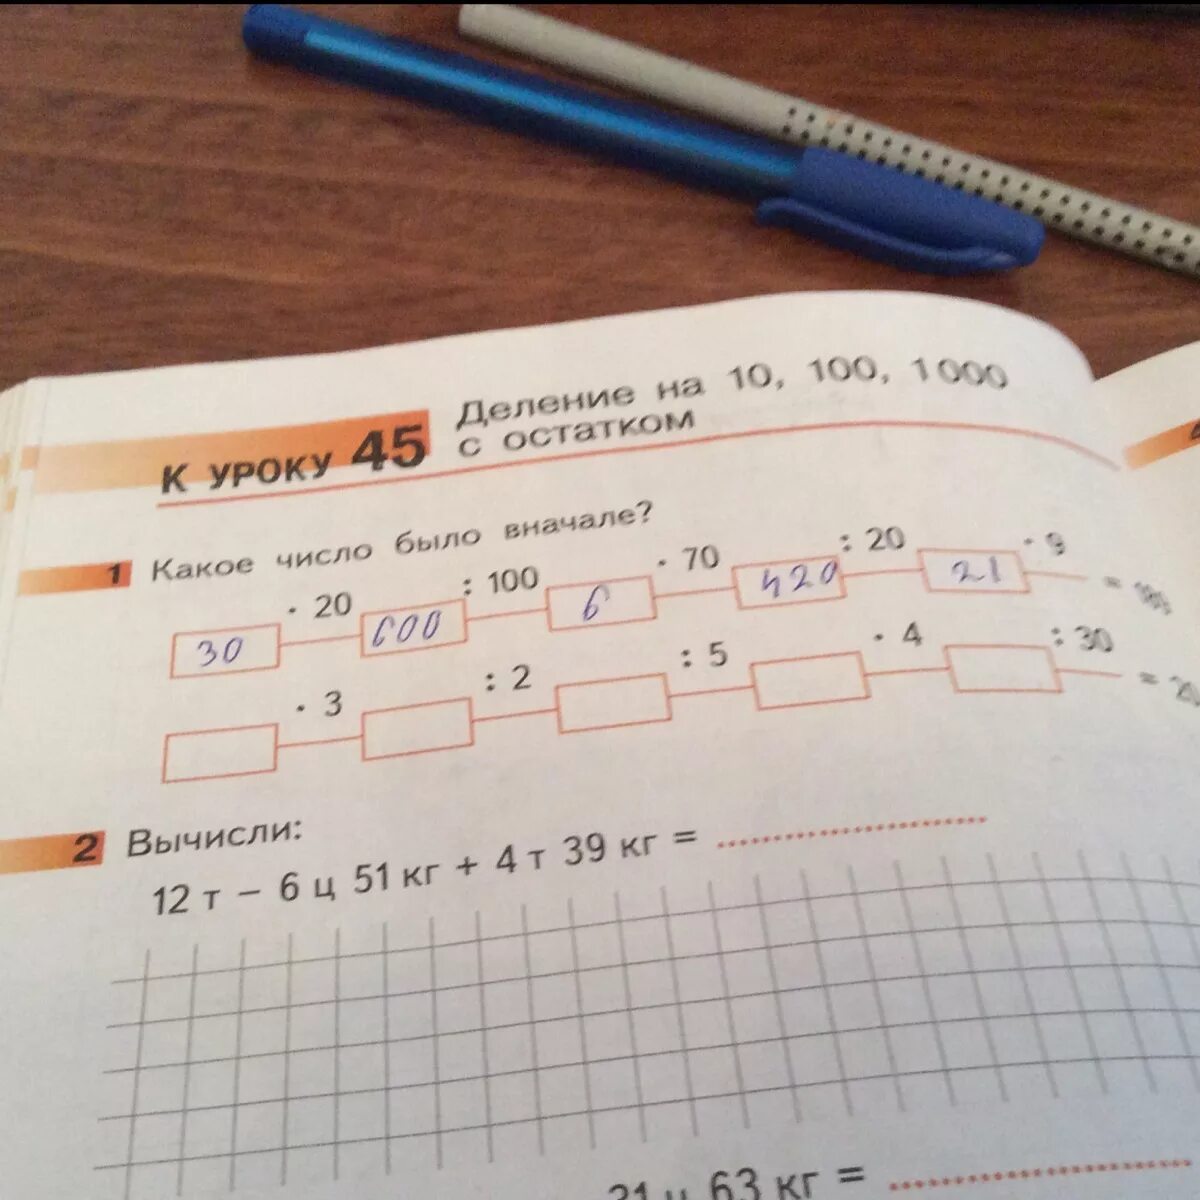 К УРОКУ 45
Деление на 10, 100, 1000
с остатком
1 Какое число было вначале?
30 · 20 600 : 100 6 · 70 420 : 20 21 · 9 =
· 3 : 2 : 5 · 4 : 30 =
2 Вычисли:
12 т – 6 ц 51 кг + 4 т 39 кг =
63 кг =